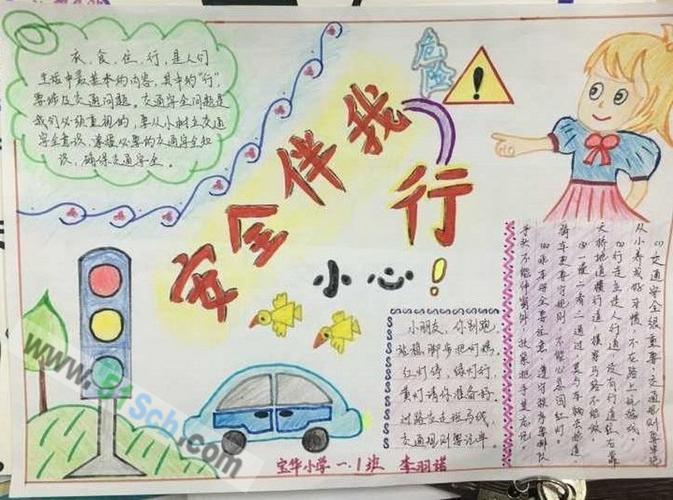 衣、食、住、行，是人们
生活中最基本的内容，其中的“行”，
要涉及交通问题。交通安全问题是
我们必须重视的，要从小树立交通
安全意识，掌握必要的交通安全知
识，确保交通安全。
危险
!
安全伴我行
小心！
小朋友，你别跑，
站稳脚步把灯瞧，
红灯停，绿灯行，
黄灯请你准备好，
过路应走斑马线，
交通规则要记牢。
(1)交通安全很重要，交通规则要牢记
从小养成好习惯，不在路上玩游戏。
(2)行走应走人行道，没有行道往右靠
天桥地道横行道，横穿马路不能做
(3)一慢二看三通过，莫与车辆去抢道
骑车更要守规则，不能心急闯红灯。
(4)乘车安全要注意，遵守秩序要排队
手头不能伸窗外，扶紧把手莫忘记。
宝华小学 一.1班 李羽诺
www.BTSch.com